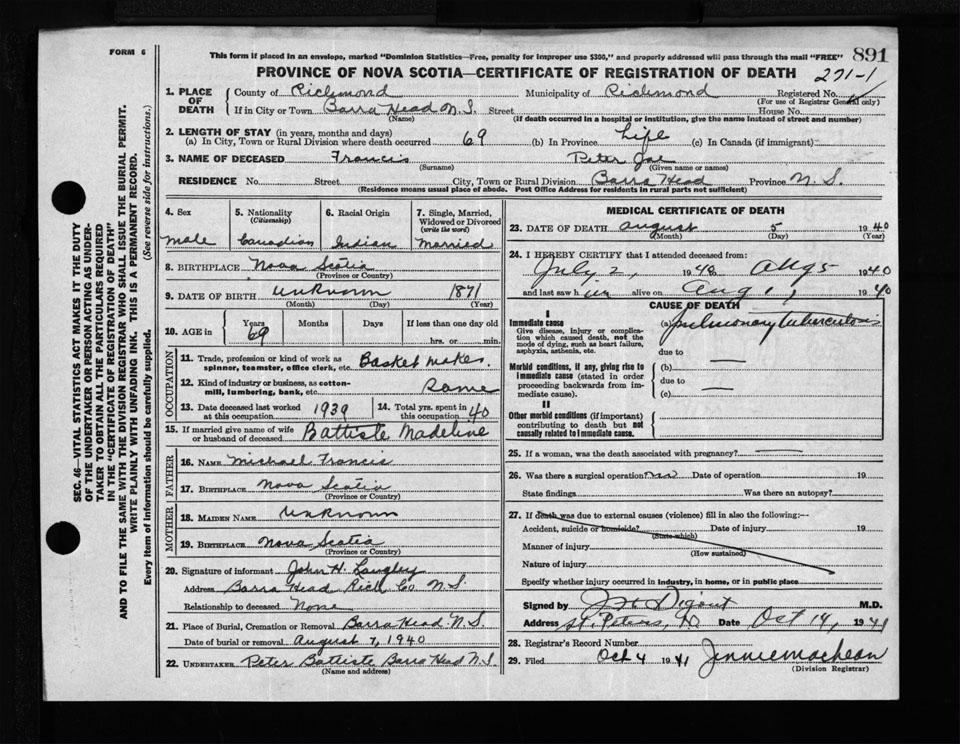 FORM 6
This form if placed in an envelope, marked "Dominion Statistics—Free, penalty for improper use $300," and properly addressed will pass through the mail "FREE"
891
PROVINCE OF NOVA SCOTIA—CERTIFICATE OF REGISTRATION OF DEATH
271-1
1. PLACE OF DEATH
County of Richmond Municipality of Richmond Registered No.
(For use of Registrar General only)
If in City or Town Barra Head N.S. Street House No.
(Name) (If death occurred in a hospital or institution, give the name instead of street and number)
2. LENGTH OF STAY (in years, months and days)
(a) In City, Town or Rural Division where death occurred 69 (b) In Province Life (c) In Canada (if immigrant)
3. NAME OF DECEASED Francis Peter Joe
(Surname) (Given name or names)
RESIDENCE No. Street City, Town or Rural Division Barra Head Province N.S.
(Residence means usual place of abode. Post Office Address for residents in rural parts not sufficient)
4. Sex
male
5. Nationality
(Citizenship)
Canadian
6. Racial Origin
Indian
7. Single, Married, Widowed or Divorced
(write the word)
Married
8. BIRTHPLACE Nova Scotia
(Province or Country)
9. DATE OF BIRTH unknown 1871
(Month) (Day) (Year)
10. AGE in
Years Months Days If less than one day old
69 hrs. or min.
OCCUPATION
11. Trade, profession or kind of work as
spinner, teamster, office clerk, etc. Basket maker
12. Kind of industry or business, as cotton-
mill, lumbering, bank, etc. Same
13. Date deceased last worked
at this occupation 1939
14. Total yrs. spent in
this occupation 40
15. If married give name of wife
or husband of deceased Battiste Madeline
FATHER
16. NAME Michael Francis
17. BIRTHPLACE Nova Scotia
(Province or Country)
MOTHER
18. MAIDEN NAME Unknown
19. BIRTHPLACE Nova Scotia
(Province or Country)
20. Signature of informant John H. Langley
Address Barra Head Rich Co N.S.
Relationship to deceased None
21. Place of Burial, Cremation or Removal Barra Head N.S.
Date of burial or removal August 7, 1940
22. UNDERTAKER Peter Battiste Barra Head N.S.
(Name and address)
MEDICAL CERTIFICATE OF DEATH
23. DATE OF DEATH August 5 1940
(Month) (Day) (Year)
24. I HEREBY CERTIFY that I attended deceased from:
July 2, 1940 Aug 5 1940
and last saw him alive on Aug 1, 1940
CAUSE OF DEATH
I
Immediate cause
Give disease, injury or complica-
tion which caused death, not the
mode of dying, such as heart failure,
asphyxia, asthenia, etc.
(a) pulmonary tuberculosis
due to —
Morbid conditions, if any, giving rise to
Immediate cause (stated in order
proceeding backwards from im-
mediate cause).
(b)
due to —
(c)
II
Other morbid conditions (if important)
contributing to death but not
causally related to Immediate cause.
25. If a woman, was the death associated with pregnancy? —
26. Was there a surgical operation? no Date of operation 19
State findings Was there an autopsy?
27. If death was due to external causes (violence) fill in also the following:—
Accident, suicide or homicide? Date of injury 19
(State which)
Manner of injury
(How sustained)
Nature of injury
Specify whether injury occurred in industry, in home, or in public place
Signed by Digout M.D.
Address St. Peters, Date Oct 14, 1941
28. Registrar's Record Number
29. Filed Oct 4 1941 Jennie MacLean
(Division Registrar)
SEC. 46—VITAL STATISTICS ACT MAKES IT THE DUTY
OF THE UNDERTAKER OR PERSON ACTING AS UNDER-
TAKER TO OBTAIN ALL THE PARTICULARS REQUIRED
IN THE "CERTIFICATE OF REGISTRATION OF DEATH"
AND TO FILE THE SAME WITH THE DIVISION REGISTRAR WHO SHALL ISSUE THE BURIAL PERMIT.
WRITE PLAINLY WITH UNFADING INK. THIS IS A PERMANENT RECORD.
Every item of information should be carefully supplied. (See reverse side for instructions.)